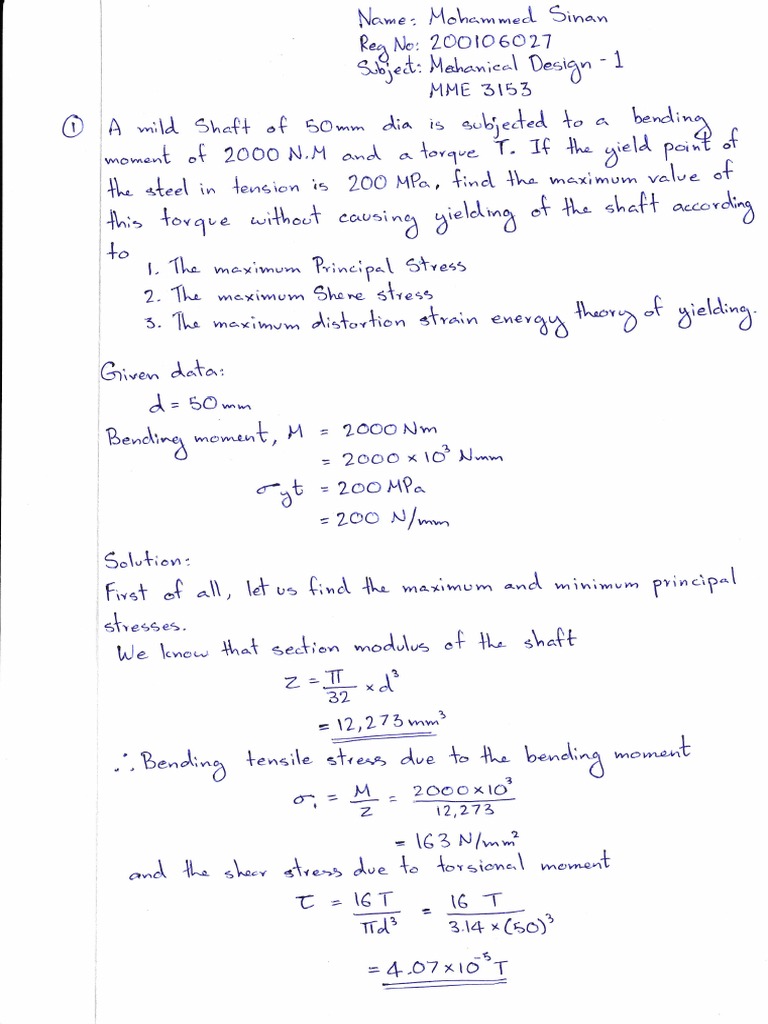 Name: Mohammed Sinan
Reg No: 200106027
Subject: Mehanical Design - 1
MME 3153
① A mild Shaft of 50mm dia is subjected to a bending
moment of 2000 N.M and a torque T. If the yield point of
the steel in tension is 200 MPa, find the maximum value of
this torque without causing yielding of the shaft according
to
1. The maximum Principal Stress
2. The maximum Shere stress
3. The maximum distortion strain energy theory of yielding.
Given data:
d = 50mm
Bending moment, M = 2000 Nm
= 2000 × 10³ Nmm
σyt = 200 MPa
= 200 N/mm
Solution:
First of all, let us find the maximum and minimum principal
stresses.
We know that section modulus of the shaft
Z = π/32 × d³
= 12,273 mm³
∴ Bending tensile stress due to the bending moment
σ₁ = M/Z = 2000×10³/12,273
= 163 N/mm²
and the shear stress due to torsional moment
τ = 16 T/πd³ = 16 T/3.14 × (50)³
= 4.07×10⁻⁵ T